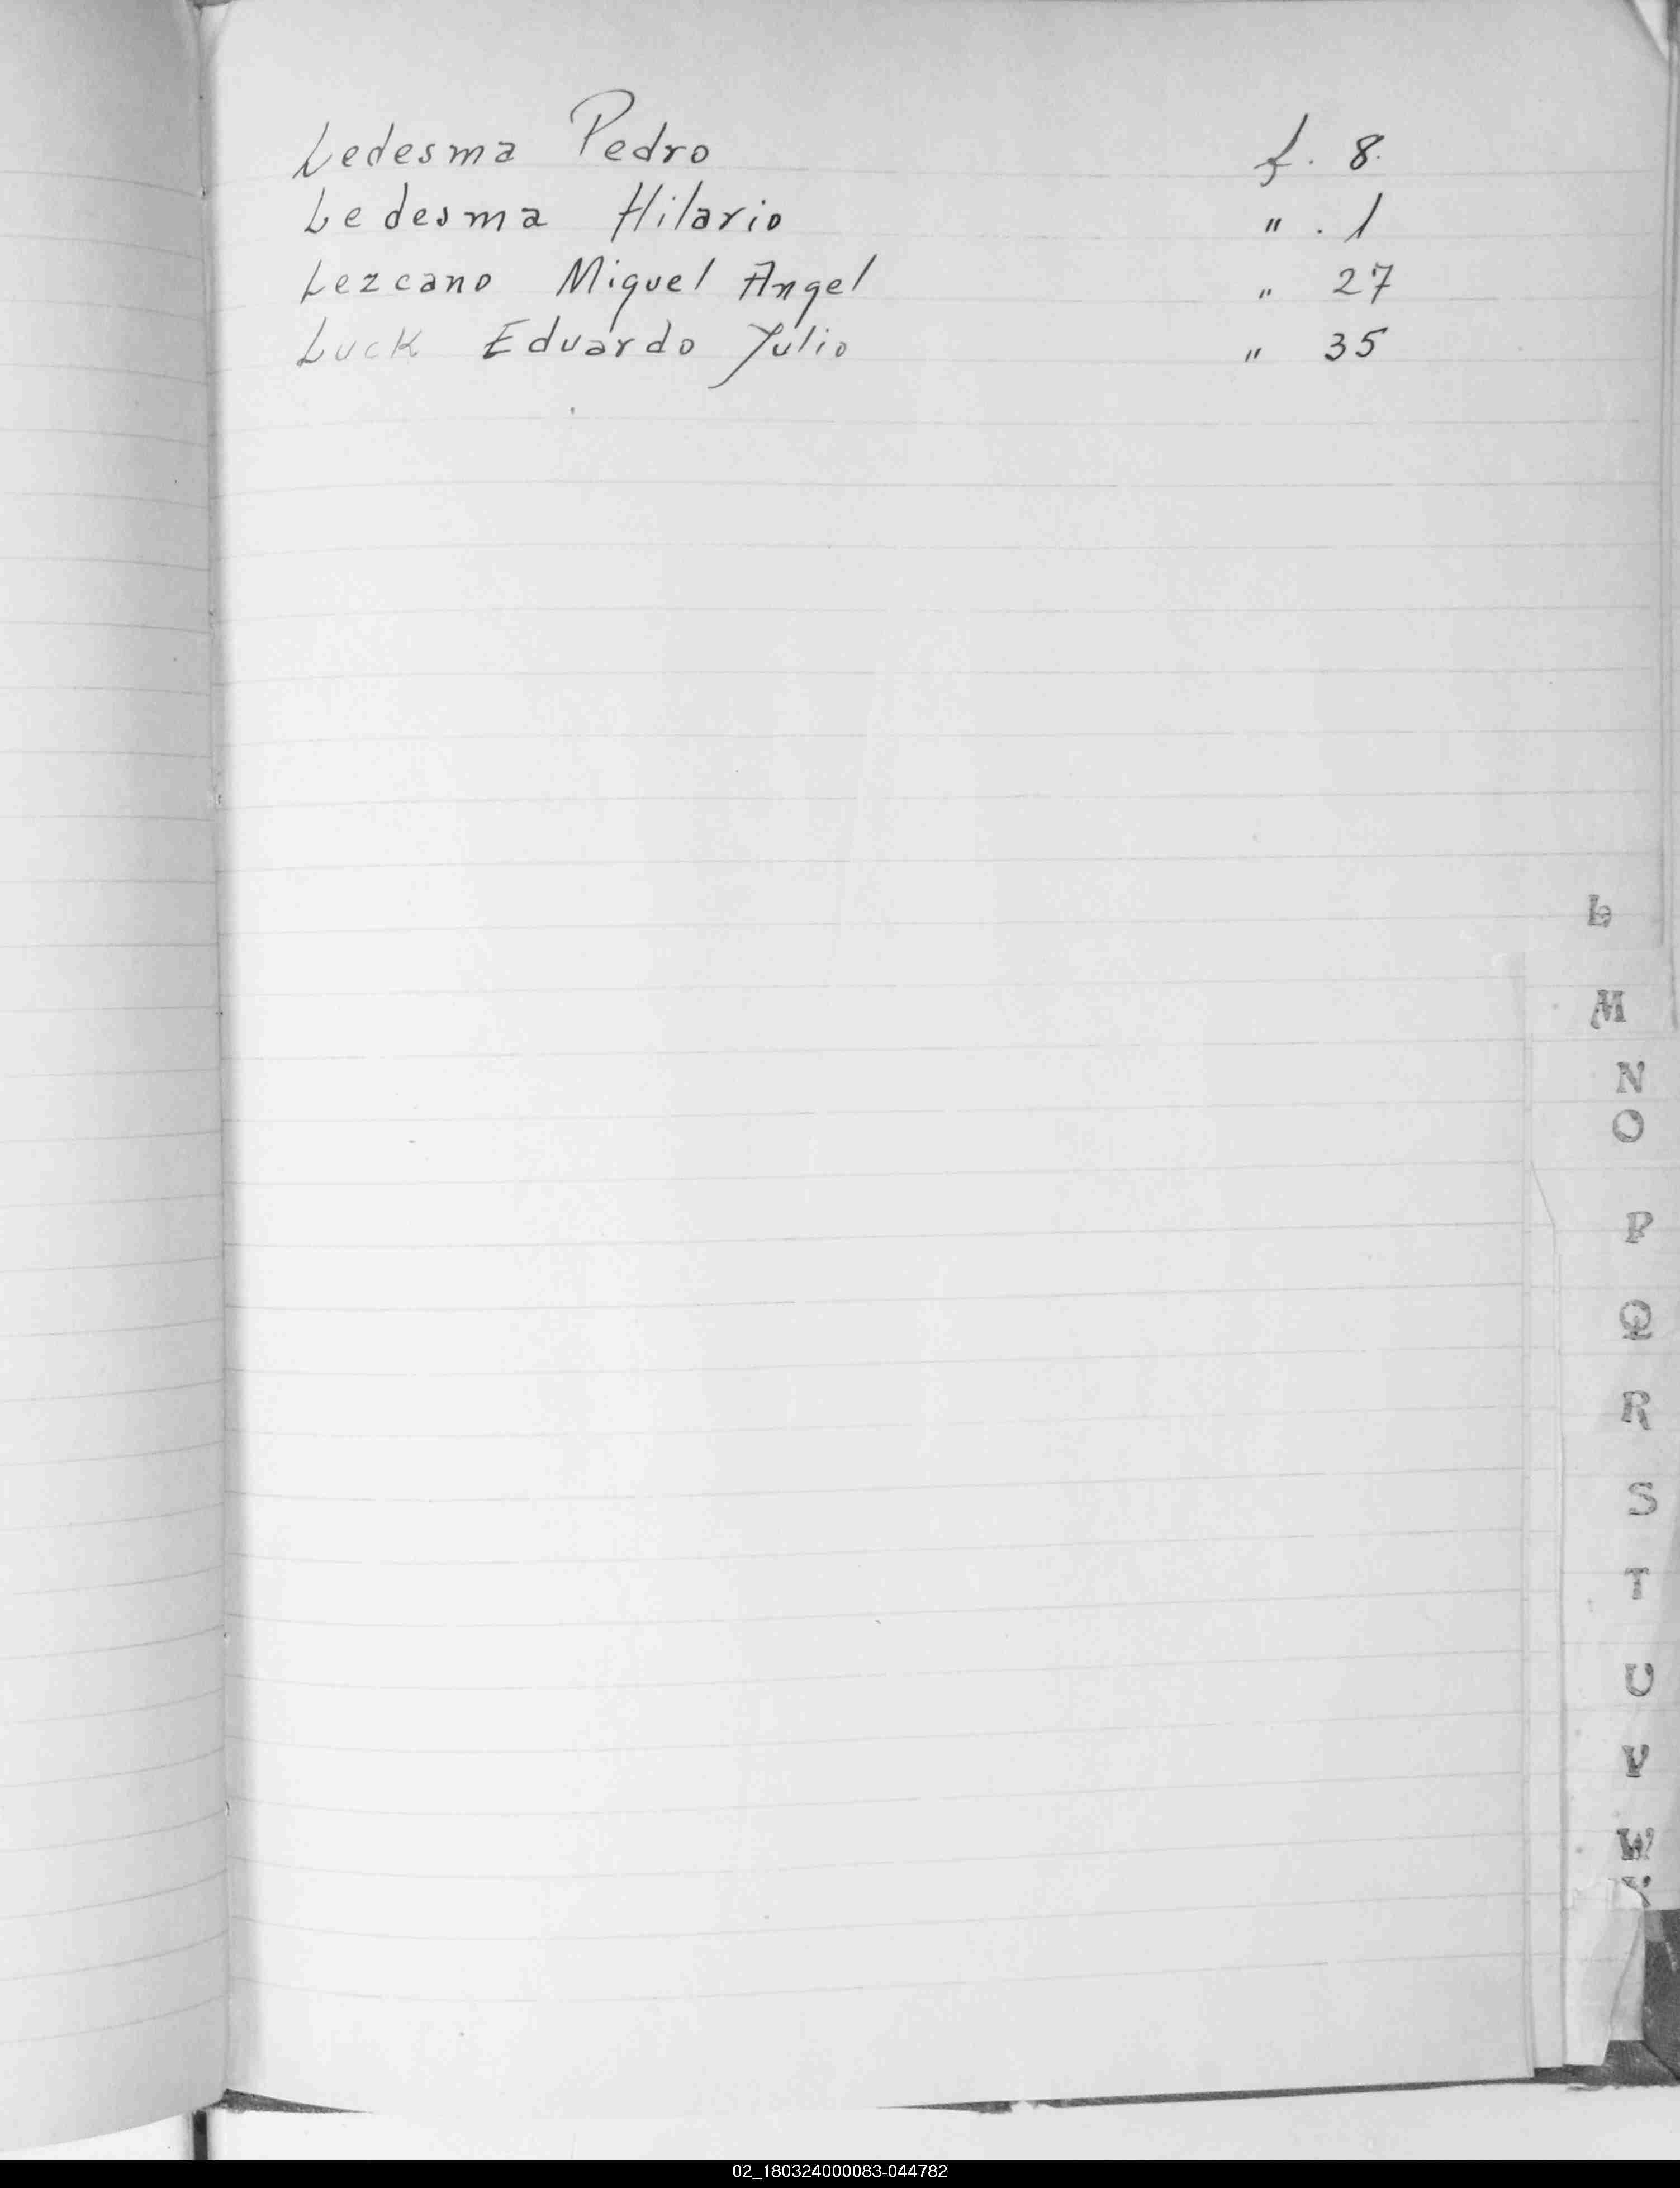 Ledesma Pedro f. 8.
Ledesma Hilario " . 1
Lezcano Miguel Angel " 27
Luck Eduardo Julio " 35
L
M
N
O
P
Q
R
S
T
U
V
W
02_180324000083-044782